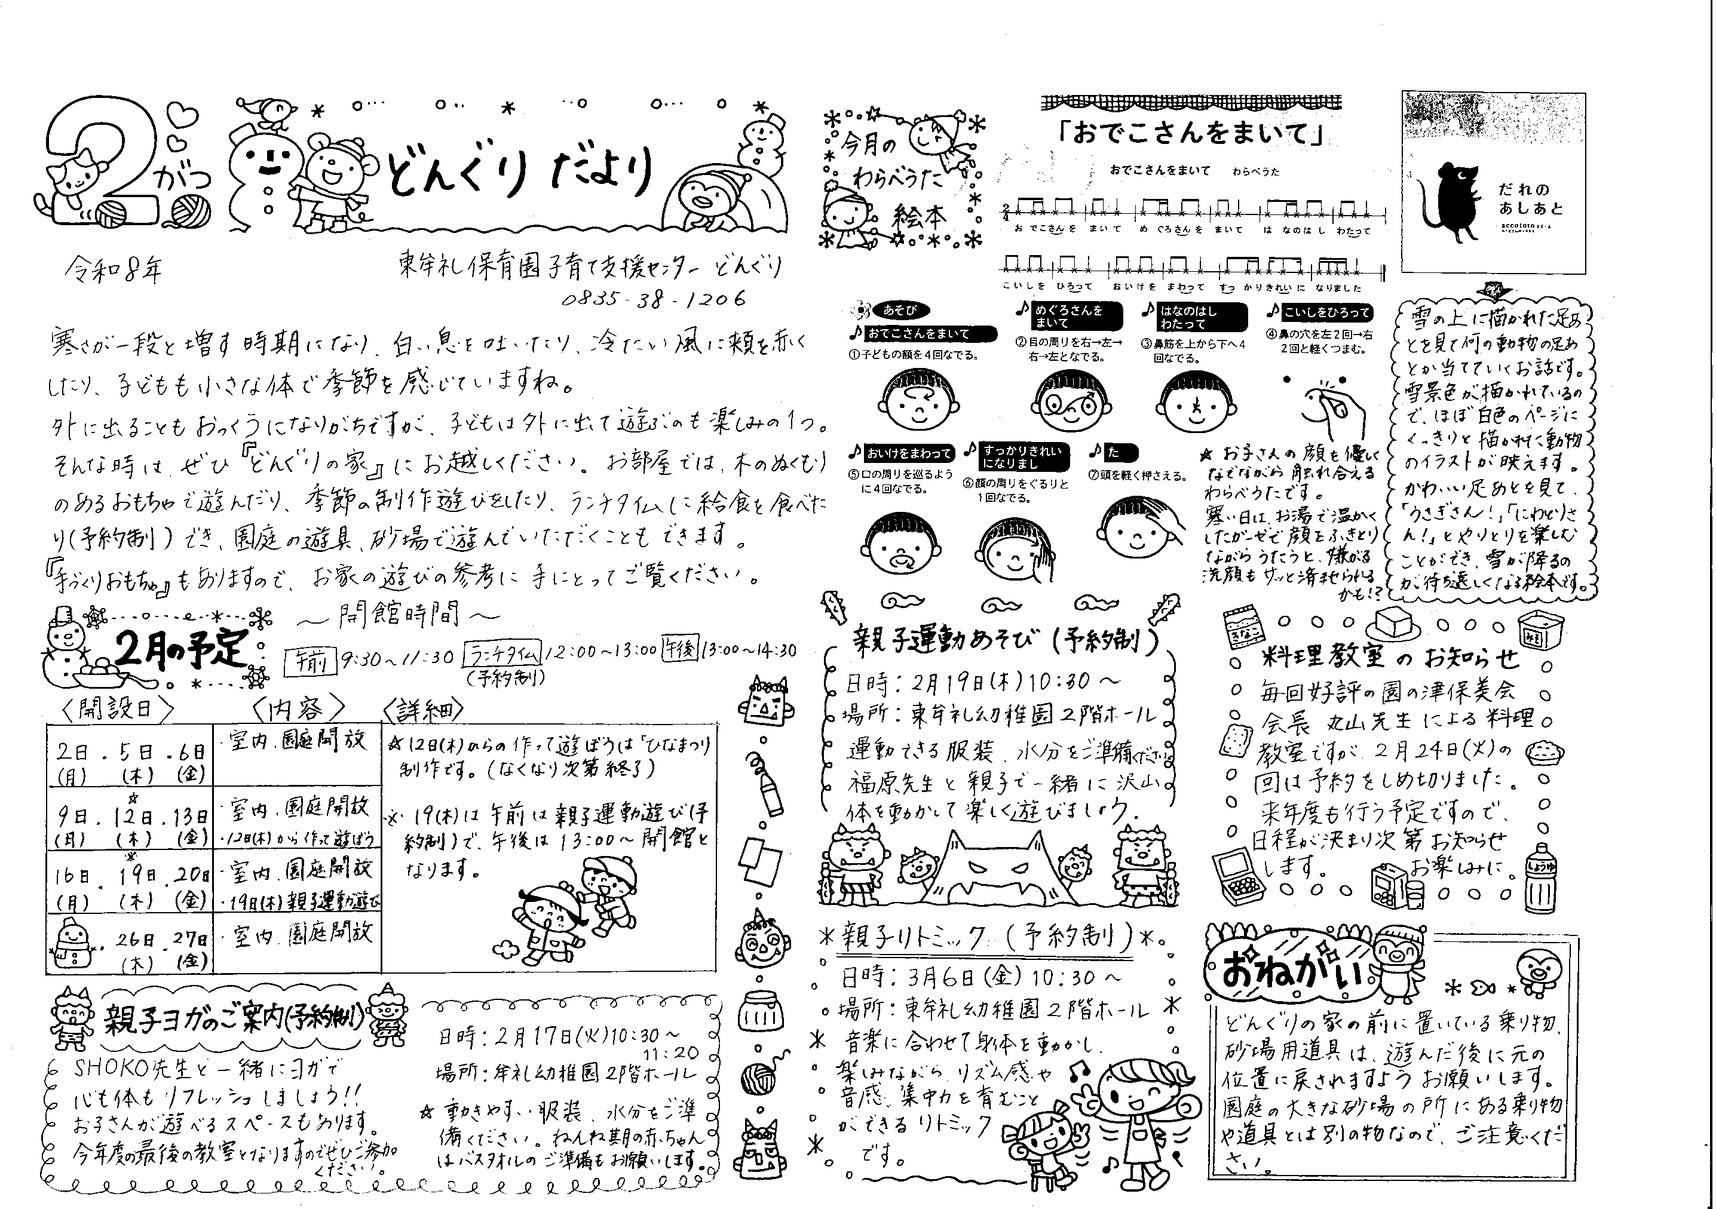 2がつ
どんぐりだより
令和8年
東牟礼保育園子育て支援センター どんぐり
0835-38-1206
寒さが一段と増す時期になり、白い息を吐いたり、冷たい風に頬を赤く
したり、子どもも小さな体で季節を感じていますね。
外に出ることもおっくうになりがちですが、子どもは外に出て遊ぶのも楽しみの1つ。
そんな時は、ぜひ『どんぐりの家』にお越しください。お部屋では、木のぬくもり
のあるおもちゃで遊んだり、季節の制作遊びをしたり、ランチタイムに給食を食べた
り(予約制)でき、園庭の遊具、砂場で遊んでいただくこともできます。
『手づくりおもちゃ』もありますので、お家の遊びの参考に手にとってご覧ください。
2月の予定
～開館時間～
午前 9:30～11:30 ランチタイム 12:00～13:00 午後 13:00～14:30
(予約制)
〈開設日〉 〈内容〉 〈詳細〉
2日・5日・6日
(月) (木) (金)
・室内、園庭開放
9日・12日・13日
(月) (木) (金)
・室内、園庭開放
・12日(木)から作って遊ぼう
16日・19日・20日
(月) (木) (金)
・室内、園庭開放
・19日(木)親子運動遊び
26日・27日
(木) (金)
・室内、園庭開放
☆12日(木)からの作って遊ぼうは「ひなまつり
制作です。(なくなり次第終了)
※19(木)は午前は親子運動遊び(予
約制)で、午後は13:00～開館と
なります。
親子ヨガのご案内(予約制)
SHOKO先生と一緒にヨガで
心も体もリフレッシュしましょう!!
お子さんが遊べるスペースもあります。
今年度の最後の教室となりますのでぜひご参加
ください。
日時:2月17日(火)10:30～
11:20
場所:牟礼幼稚園2階ホール
☆動きやすい服装、水分をご準
備ください。ねんね期の赤ちゃん
はバスタオルのご準備もお願いします。
今月の
わらべうた
絵本
「おでこさんをまいて」
おでこさんをまいて わらべうた
おでこさんを まいて めぐろさんを まいて はなのはし わたって
こいしを ひろって おいけを まわって すっかりきれいに なりました
あそび
おでこさんをまいて
①子どもの額を4回なでる。
めぐろさんを
まいて
②目の周りを右→左→
右→左となでる。
はなのはし
わたって
③鼻筋を上から下へ4
回なでる。
こいしをひろって
④鼻の穴を左2回→右
2回と軽くつまむ。
おいけをまわって
⑤口の周りを巡るよう
に4回なでる。
すっかりきれい
になりまし
⑥顔の周りをぐるりと
1回なでる。
た
⑦頭を軽く押さえる。
☆お子さんの顔も優しく
なでながら触れ合える
わらべうたです。
寒い日は、お湯で温かく
したガーゼで顔をふきとり
ながらうたうと、嫌がる
洗顔もサッと済ませられる
かも!?
だれの
あしあと
accototo
雪の上に描かれた足あ
とを見て何の動物の足あ
とか当てていくお話です。
雪景色が描かれているの
で、ほぼ白色のページに
くっきりと描かれた動物
のイラストが映えます。
かわいい足あとを見て、
「うさぎさん!」「にわとりさ
ん!」とやりとりを楽しむ
ことができ、雪が降るの
が待ち遠しくなる絵本です。
親子運動あそび(予約制)
日時:2月19日(木)10:30～
場所:東牟礼幼稚園2階ホール
運動できる服装、水分をご準備ください
福原先生と親子で一緒に沢山
体を動かして楽しく遊びましょう。
料理教室のお知らせ
きなこ
みそ
毎回好評の園の津保美会
会長 丸山先生による料理
教室ですが、2月24日(火)の
回は予約をしめ切りました。
来年度も行う予定ですので、
日程が決まり次第お知らせ
します。 お楽しみに。
しょうゆ
*親子リトミック(予約制)*
日時:3月6日(金)10:30～
場所:東牟礼幼稚園2階ホール
音楽に合わせて身体を動かし、
楽しみながら、リズム感や
音感、集中力を育むこと
ができるリトミック
です。
おねがい
どんぐりの家の前に置いている乗り物、
砂場用道具は、遊んだ後に元の
位置に戻されますようお願いします。
園庭の大きな砂場の所にある乗り物
や道具とは別の物なので、ご注意くだ
さい。